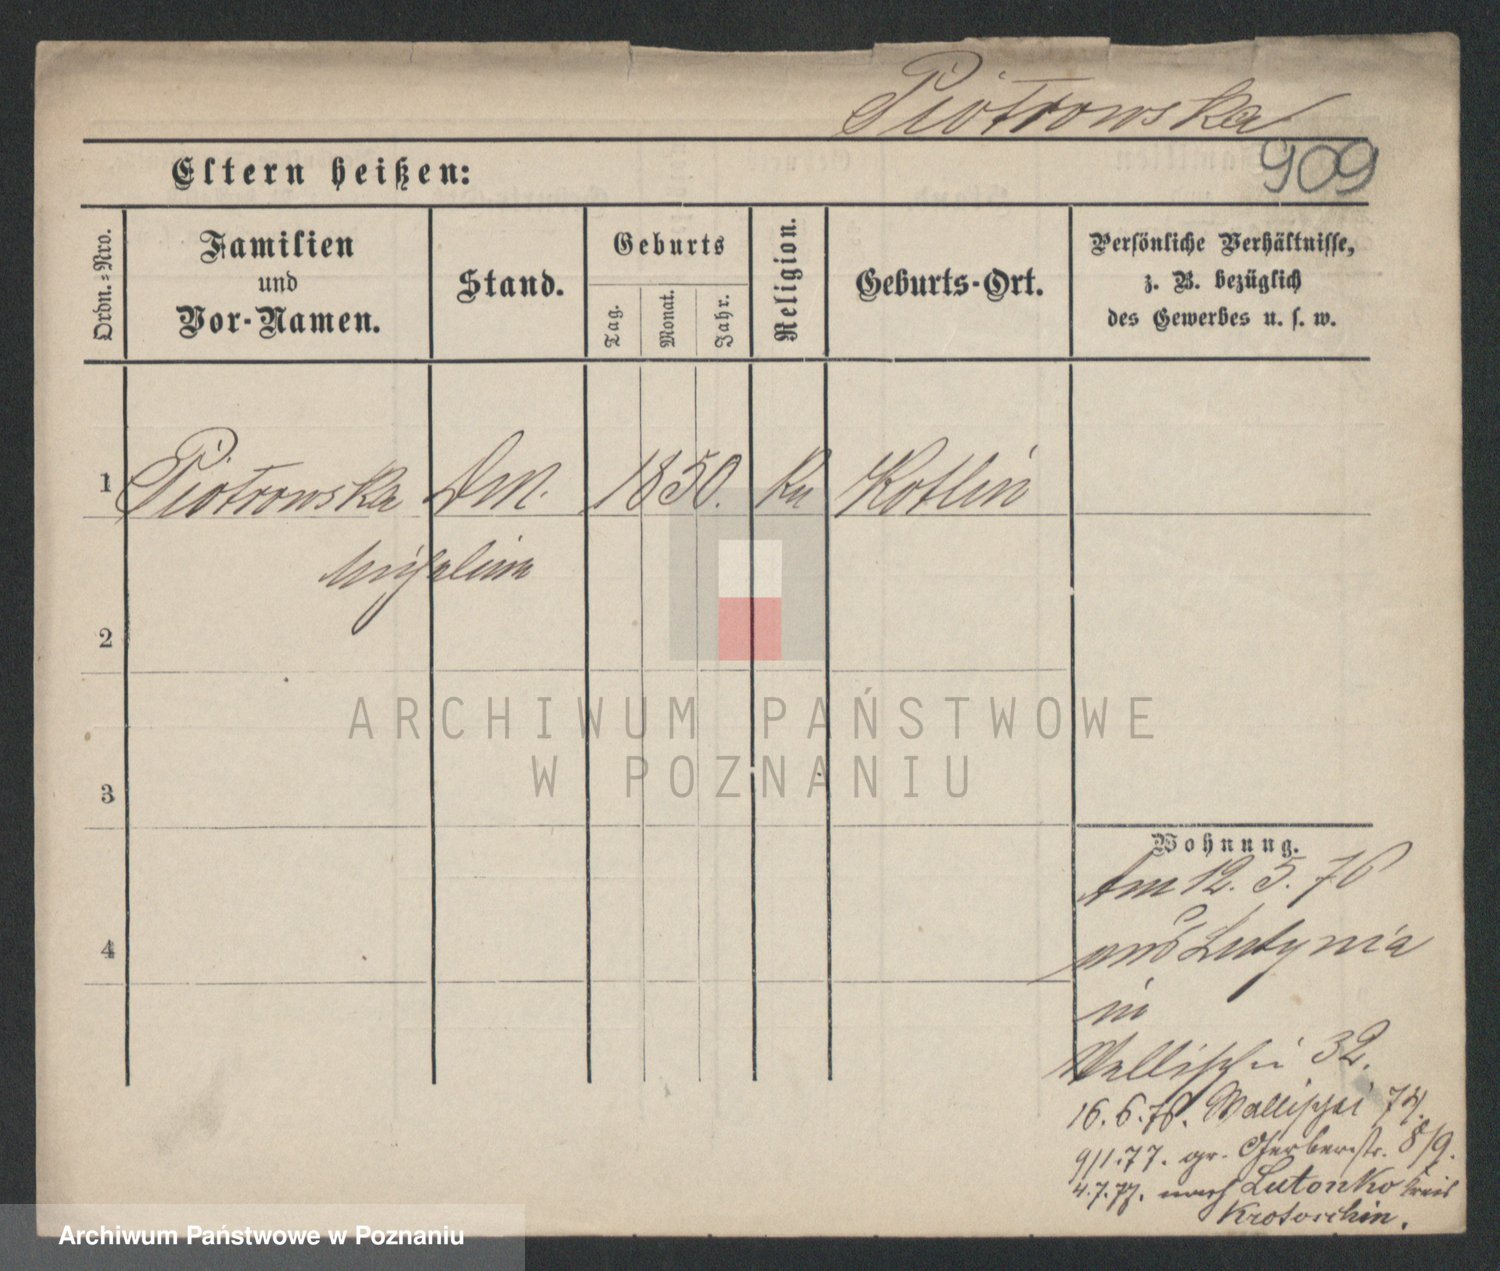 Piotrowska
909
Eltern heißen:
Ordn.-Nro.
Familien
und
Vor-Namen.
Stand.
Geburts
Tag.
Monat.
Jahr.
Religion.
Geburts-Ort.
Persönliche Verhältnisse,
z. B. bezüglich
des Gewerbes u. s. w.
1 Piotrowska Dm. 1850. Ka Kotlin
Michalina
2
ARCHIWUM PAŃSTWOWE
W POZNANIU
3
Wohnung.
Am 12. 5. 76
aus Lutynia
4
in
Wallischei 32.
16. 6. 76. Wallischei 74.
9/1.77. gr. Gerberstr. 8/9.
4.7.77. nach Lutonko Kreis
Krotoschin.
Archiwum Państwowe w Poznaniu